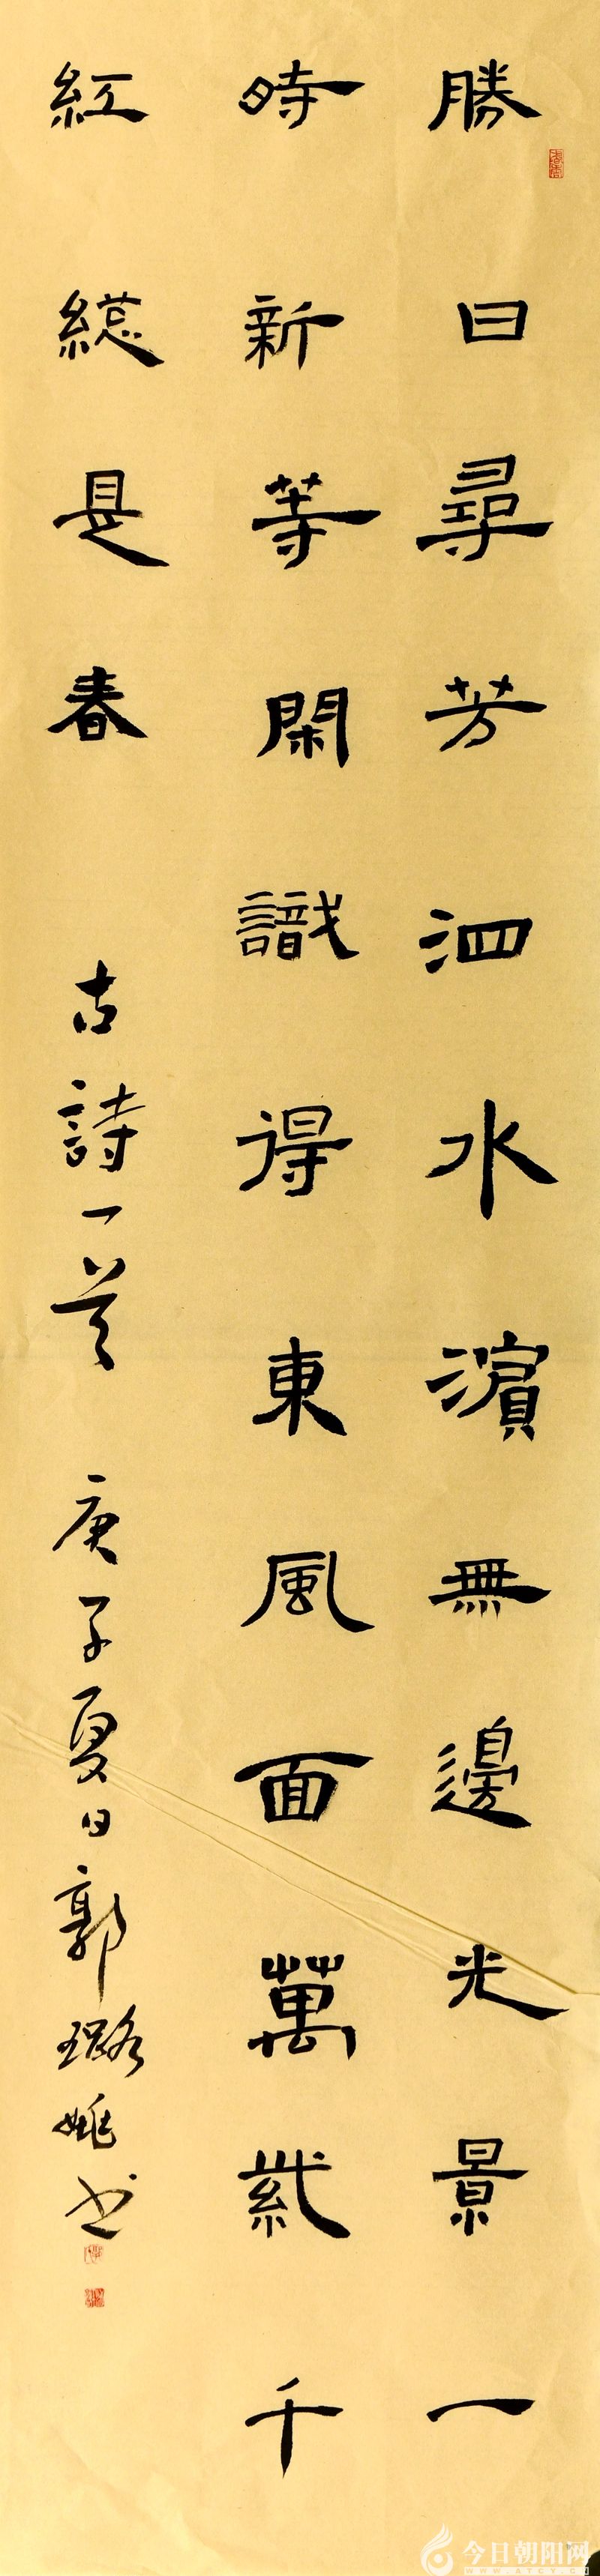 勝日尋芳泗水濱無邊光景一
時新等閑識得東風面萬紫千
紅總是春 古詩一首 庚子夏日郭璐姚书
今日朝阳网